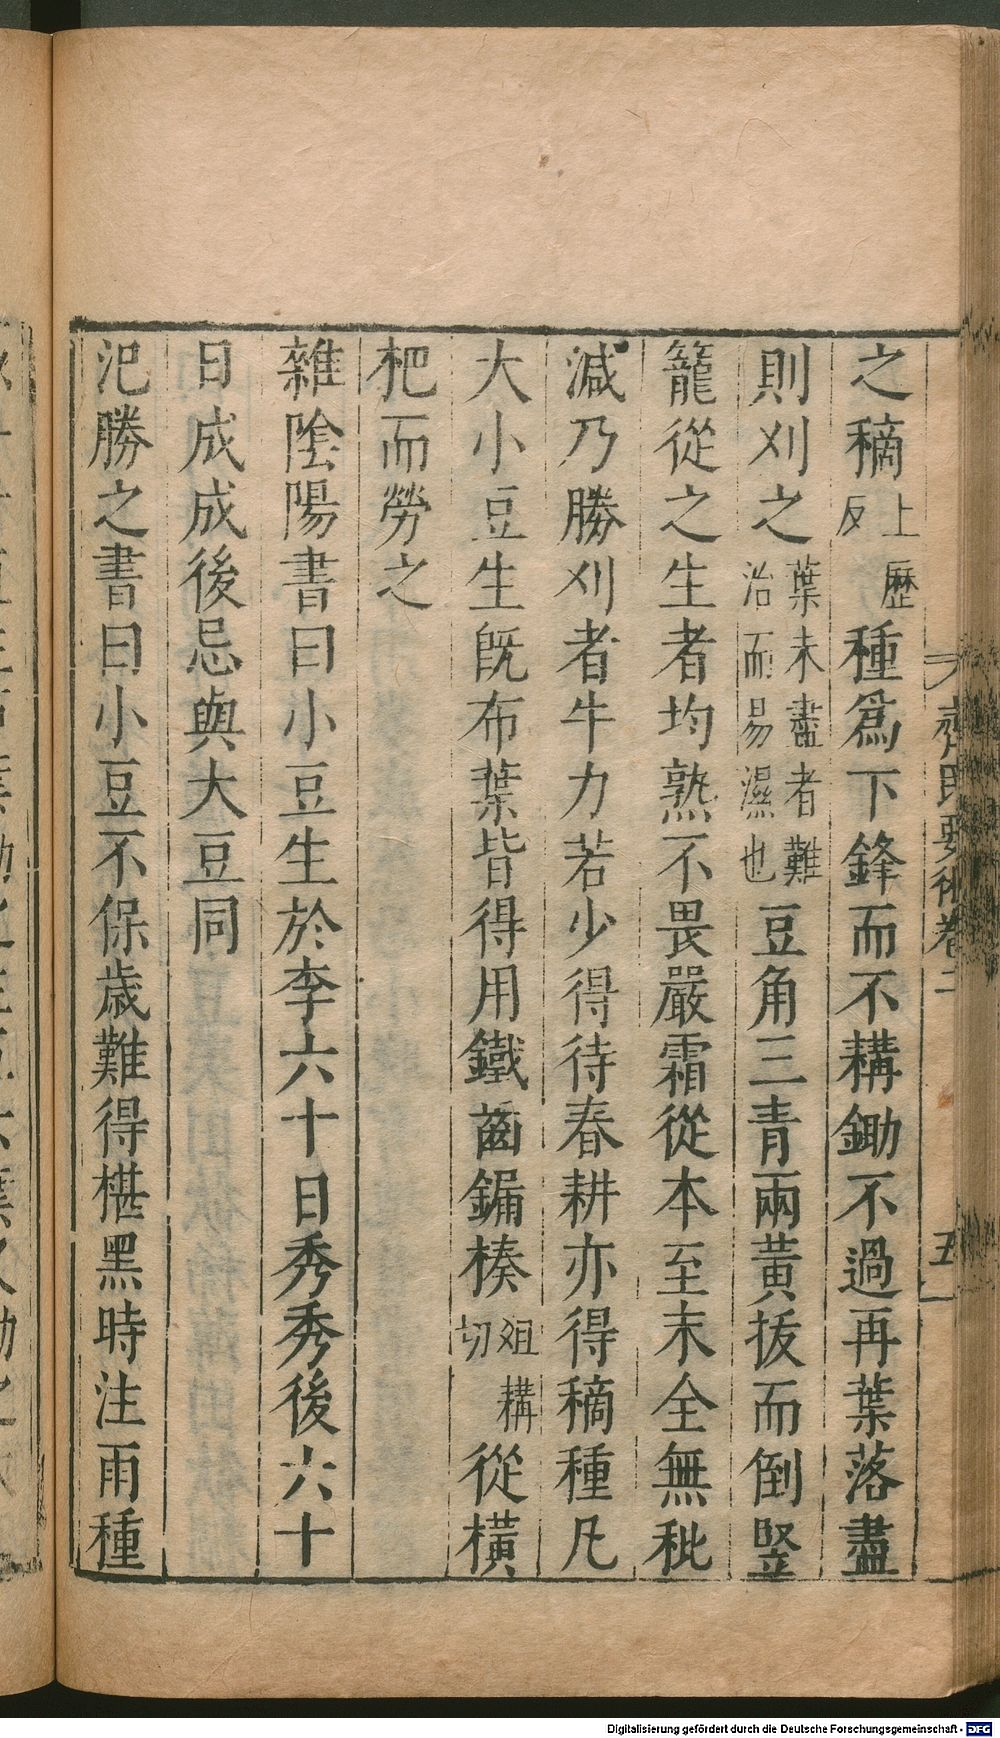 之稿上歷反種爲下鋒而不耩鋤不過再葉落盡
則刈之葉未盡者難治而易濕也豆角三青兩黃拔而倒豎
籠從之生者均熟不畏嚴霜從本至末全無秕
減乃勝刈者牛力若少得待春耕亦得稿種凡
大小豆生既布葉皆得用鐵齒鍽楱俎構切從橫
杷而勞之
雜陰陽書曰小豆生於李六十日秀秀後六十
日成成後忌與大豆同
氾勝之書曰小豆不保歳難得椹黑時注雨種
齊民要術卷二
五
Digitalisierung gefördert durch die Deutsche Forschungsgemeinschaft - DFG